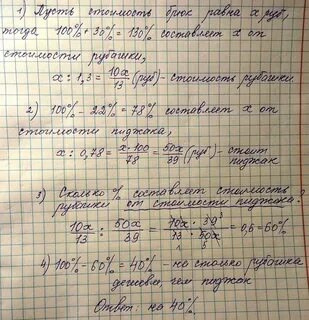 1) Пусть стоимость брюк равна x руб,
тогда 100% + 30% = 130% составляет x от
стоимости рубашки,
x : 1,3 = 10x/13 (руб) - стоимость рубашки
2) 100% - 22% = 78% составляет x от
стоимости пиджака,
x : 0,78 = x·100/78 = 50x/39 (руб) - стоит
пиджак
3) Сколько % составляет стоимость
рубашки от стоимости пиджака?
10x/13 : 50x/39 = 10x · 39/13 · 50x = 0,6 = 60%
4) 100% - 60% = 40% - на столько рубашка
дешевле, чем пиджак
Ответ: на 40%.